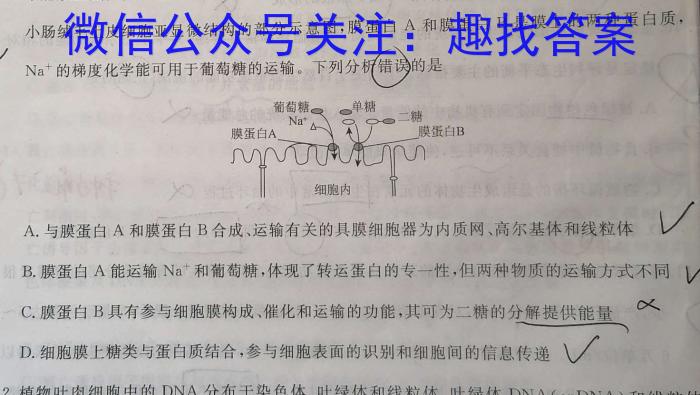 微信公众号关注：趣找答案
小肠绒毛上皮细胞亚显微结构的部分示意图,膜蛋白 A 和膜蛋白 B 是膜上的两种蛋白质,
Na⁺的梯度化学能可用于葡萄糖的运输。下列分析错误的是
葡萄糖
单糖
Na⁺
二糖
膜蛋白A
膜蛋白B
细胞内
A. 与膜蛋白 A 和膜蛋白 B 合成、运输有关的具膜细胞器为内质网、高尔基体和线粒体
B. 膜蛋白 A 能运输 Na⁺和葡萄糖,体现了转运蛋白的专一性,但两种物质的运输方式不同
C. 膜蛋白 B 具有参与细胞膜构成、催化和运输的功能,其可为二糖的分解提供能量
D. 细胞膜上糖类与蛋白质结合,参与细胞表面的识别和细胞间的信息传递
2. 植物叶肉细胞中的 DNA 分布于染色体、叶绿体和线粒体